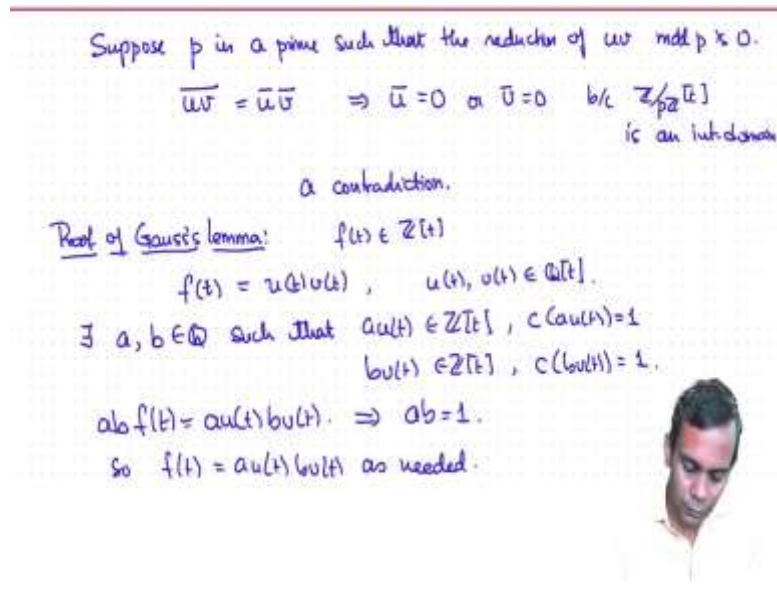 Suppose p is a prime such that the reduction of uv mod p is 0.
\overline{uv} = ū v̄ ⇒ ū = 0 or v̄ = 0 b/c ℤ/pℤ[t]
is an int. domain
a contradiction.
Proof of Gauss's lemma: f(t) ∈ ℤ[t]
f(t) = u(t)v(t) , u(t), v(t) ∈ ℚ[t].
∃ a, b ∈ ℚ such that au(t) ∈ ℤ[t] , c(au(t))=1
bv(t) ∈ ℤ[t] , c(bv(t))=1.
ab f(t) = au(t) bv(t). ⇒ ab=1.
So f(t) = au(t) bv(t) as needed.